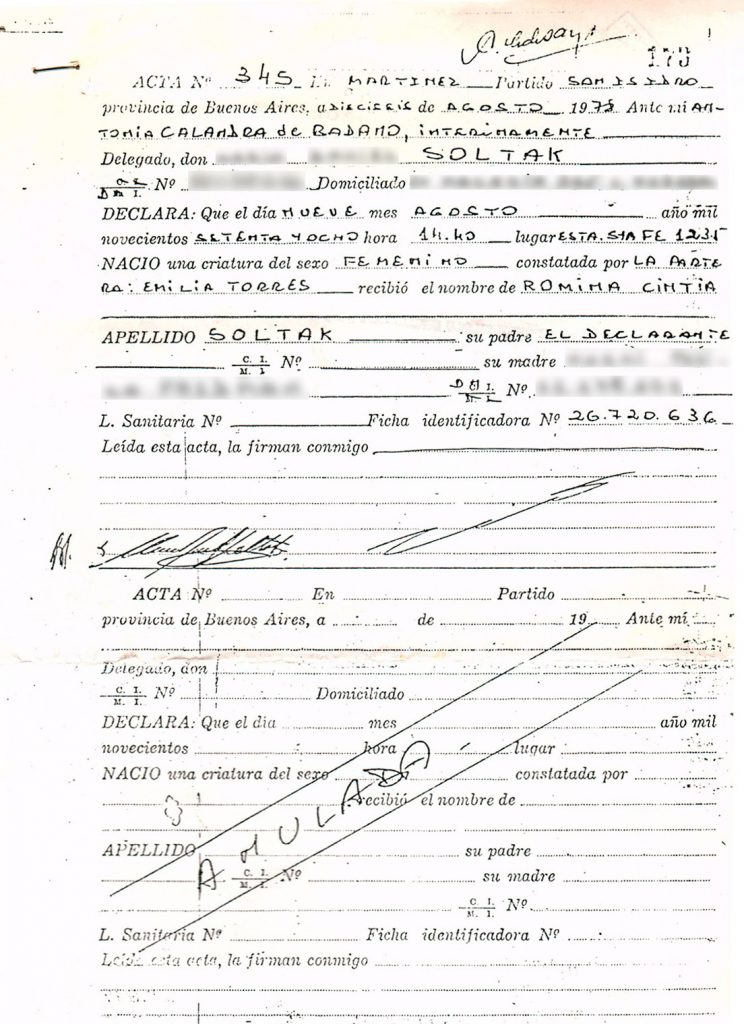 173
ACTA Nº 345 En MARTINEZ Partido SAN ISIDRO
provincia de Buenos Aires, a DIECISEIS de AGOSTO 1978 Ante mi AN-
TONIA CALANDRA de RADANO, INTERINAMENTE
Delegado, don SOLTAK
D N I. Nº Domiciliado
DECLARA: Que el día NUEVE mes AGOSTO año mil
novecientos SETENTA Y OCHO hora 14.40 lugar ESTA. STA FE 1231
NACIO una criatura del sexo FEMENINO constatada por LA PARTE
RA: EMILIA TORRES recibió el nombre de ROMINA CINTIA
APELLIDO SOLTAK su padre EL DECLARANTE
C. I. M. I. Nº su madre
D N I. Nº
L. Sanitaria Nº Ficha identificadora Nº 26.720.636
Leída esta acta, la firman conmigo
ACTA Nº En Partido
provincia de Buenos Aires, a de 19 Ante mi
Delegado, don
C. I. M. I. Nº Domiciliado
DECLARA: Que el día mes año mil
novecientos hora lugar
NACIO una criatura del sexo constatada por
recibió el nombre de
ANULADA
APELLIDO su padre
C. I. M. I. Nº su madre
C. I. M. I. Nº
L. Sanitaria Nº Ficha identificadora Nº
Leída esta acta, la firman conmigo